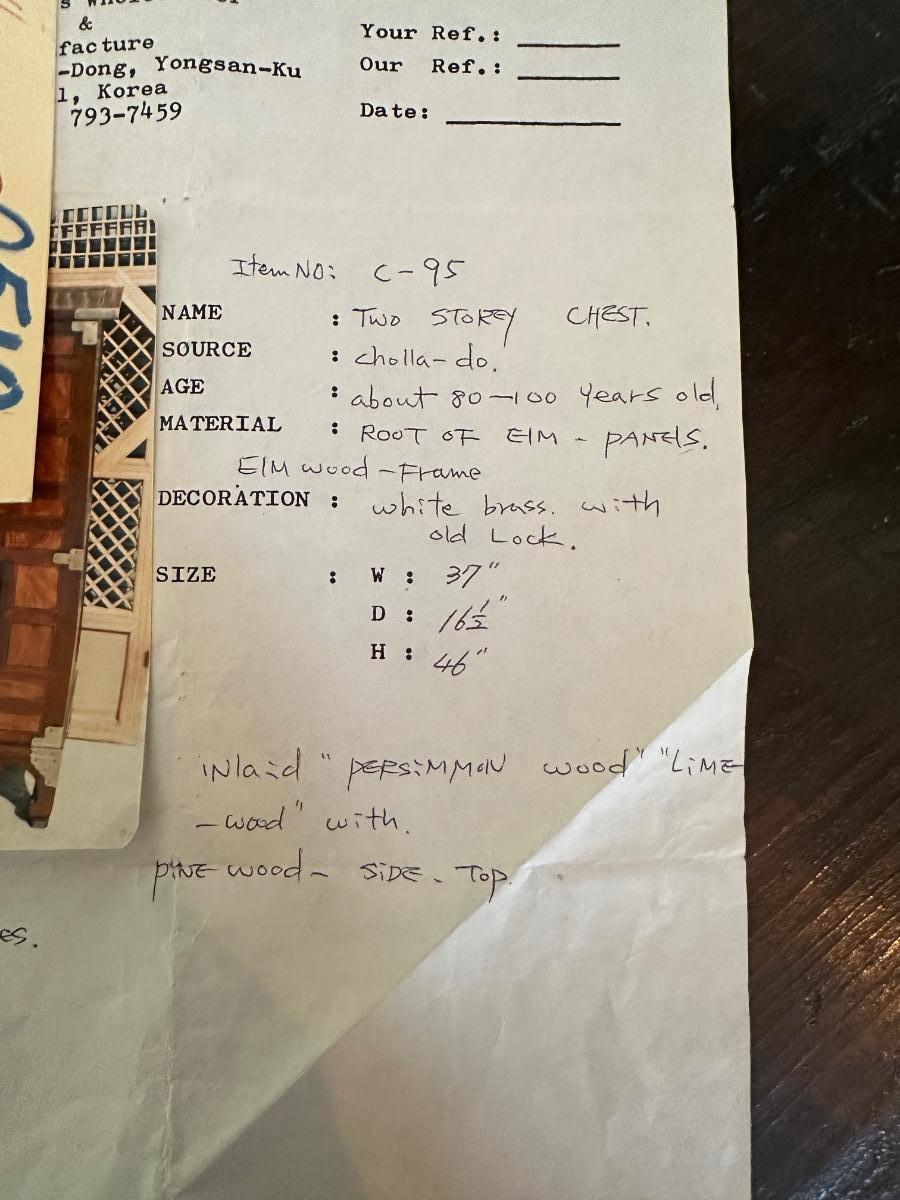 &
facture
-Dong, Yongsan-Ku
1, Korea
793-7459
Your Ref.:
Our Ref.:
Date:
Item NO: C-95
NAME : TWO STOREY CHEST.
SOURCE : cholla-do.
AGE : about 80-100 Years old,
MATERIAL : ROOT OF ElM - PANELS.
ElM wood - Frame
DECORATION : white brass. with
old Lock.
SIZE : W : 37"
D : 16½"
H : 46"
iNlaid "PERSiMMON wood" "LiME
-wood" with.
PiNE wood- SiDE. Top.
es.